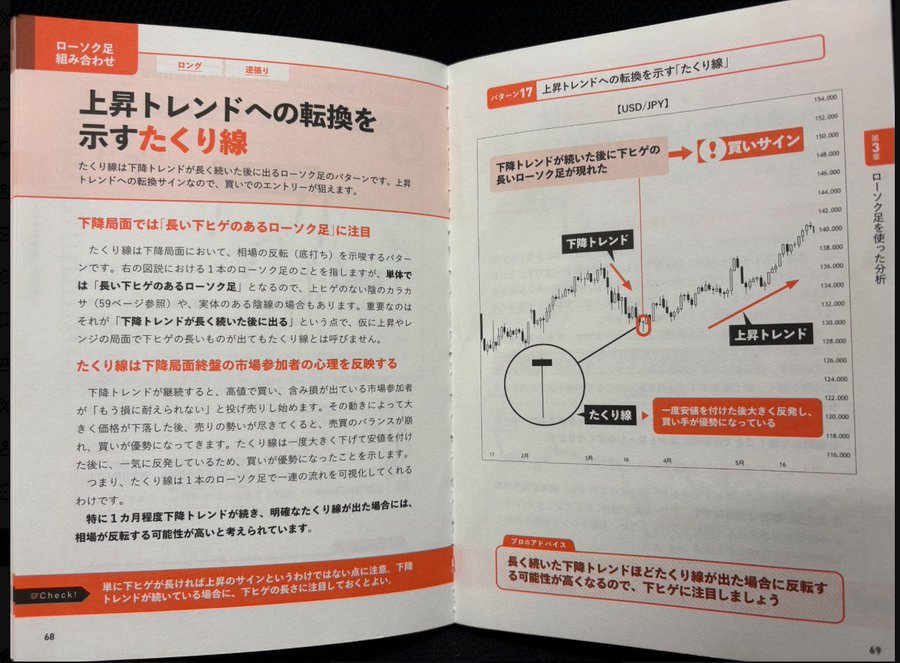 ローソク足
組み合わせ
ロング
逆張り
上昇トレンドへの転換を
示すたくり線
たくり線は下降トレンドが長く続いた後に出るローソク足のパターンです。上昇
トレンドへの転換サインなので、買いでのエントリーが狙えます。
下降局面では「長い下ヒゲのあるローソク足」に注目
たくり線は下降局面において、相場の反転（底打ち）を示唆するパター
ンです。右の図説における１本のローソク足のことを指しますが、単体で
は「長い下ヒゲのあるローソク足」となるので、上ヒゲのない陰のカラカ
サ（59ページ参照）や、実体のある陰線の場合もあります。重要なのは
それが「下降トレンドが長く続いた後に出る」という点で、仮に上昇やレ
ンジの局面で下ヒゲの長いものが出てもたくり線とは呼びません。
たくり線は下降局面終盤の市場参加者の心理を反映する
下降トレンドが継続すると、高値で買い、含み損が出ている市場参加者
が「もう損に耐えられない」と投げ売りし始めます。その動きによって大
きく価格が下落した後、売りの勢いが尽きてくると、売買のバランスが崩
れ、買いが優勢になってきます。たくり線は一度大きく下げて安値を付け
た後に、一気に反発しているため、買いが優勢になったことを示します。
つまり、たくり線は１本のローソク足で一連の流れを可視化してくれる
わけです。
特に１カ月程度下降トレンドが続き、明確なたくり線が出た場合には、
相場が反転する可能性が高いと考えられています。
Check!
単に下ヒゲが長ければ上昇のサインというわけではない点に注意。下降
トレンドが続いている場合に、下ヒゲの長さに注目しておくとよい。
68
パターン17
上昇トレンドへの転換を示す「たくり線」
【USD/JPY】
下降トレンドが続いた後に下ヒゲの
長いローソク足が現れた
買いサイン
下降トレンド
上昇トレンド
たくり線
一度安値を付けた後大きく反発し、
買い手が優勢になっている
154.000
152.000
150.000
148.000
146.000
144.000
142.000
140.000
138.000
136.000
134.000
132.000
130.000
128.000
126.000
124.000
122.000
120.000
118.000
116.000
17
2月
16
3月
16
4月
5月
16
プロのアドバイス
長く続いた下降トレンドほどたくり線が出た場合に反転す
る可能性が高くなるので、下ヒゲに注目しましょう
第3章
ローソク足を使った分析
69